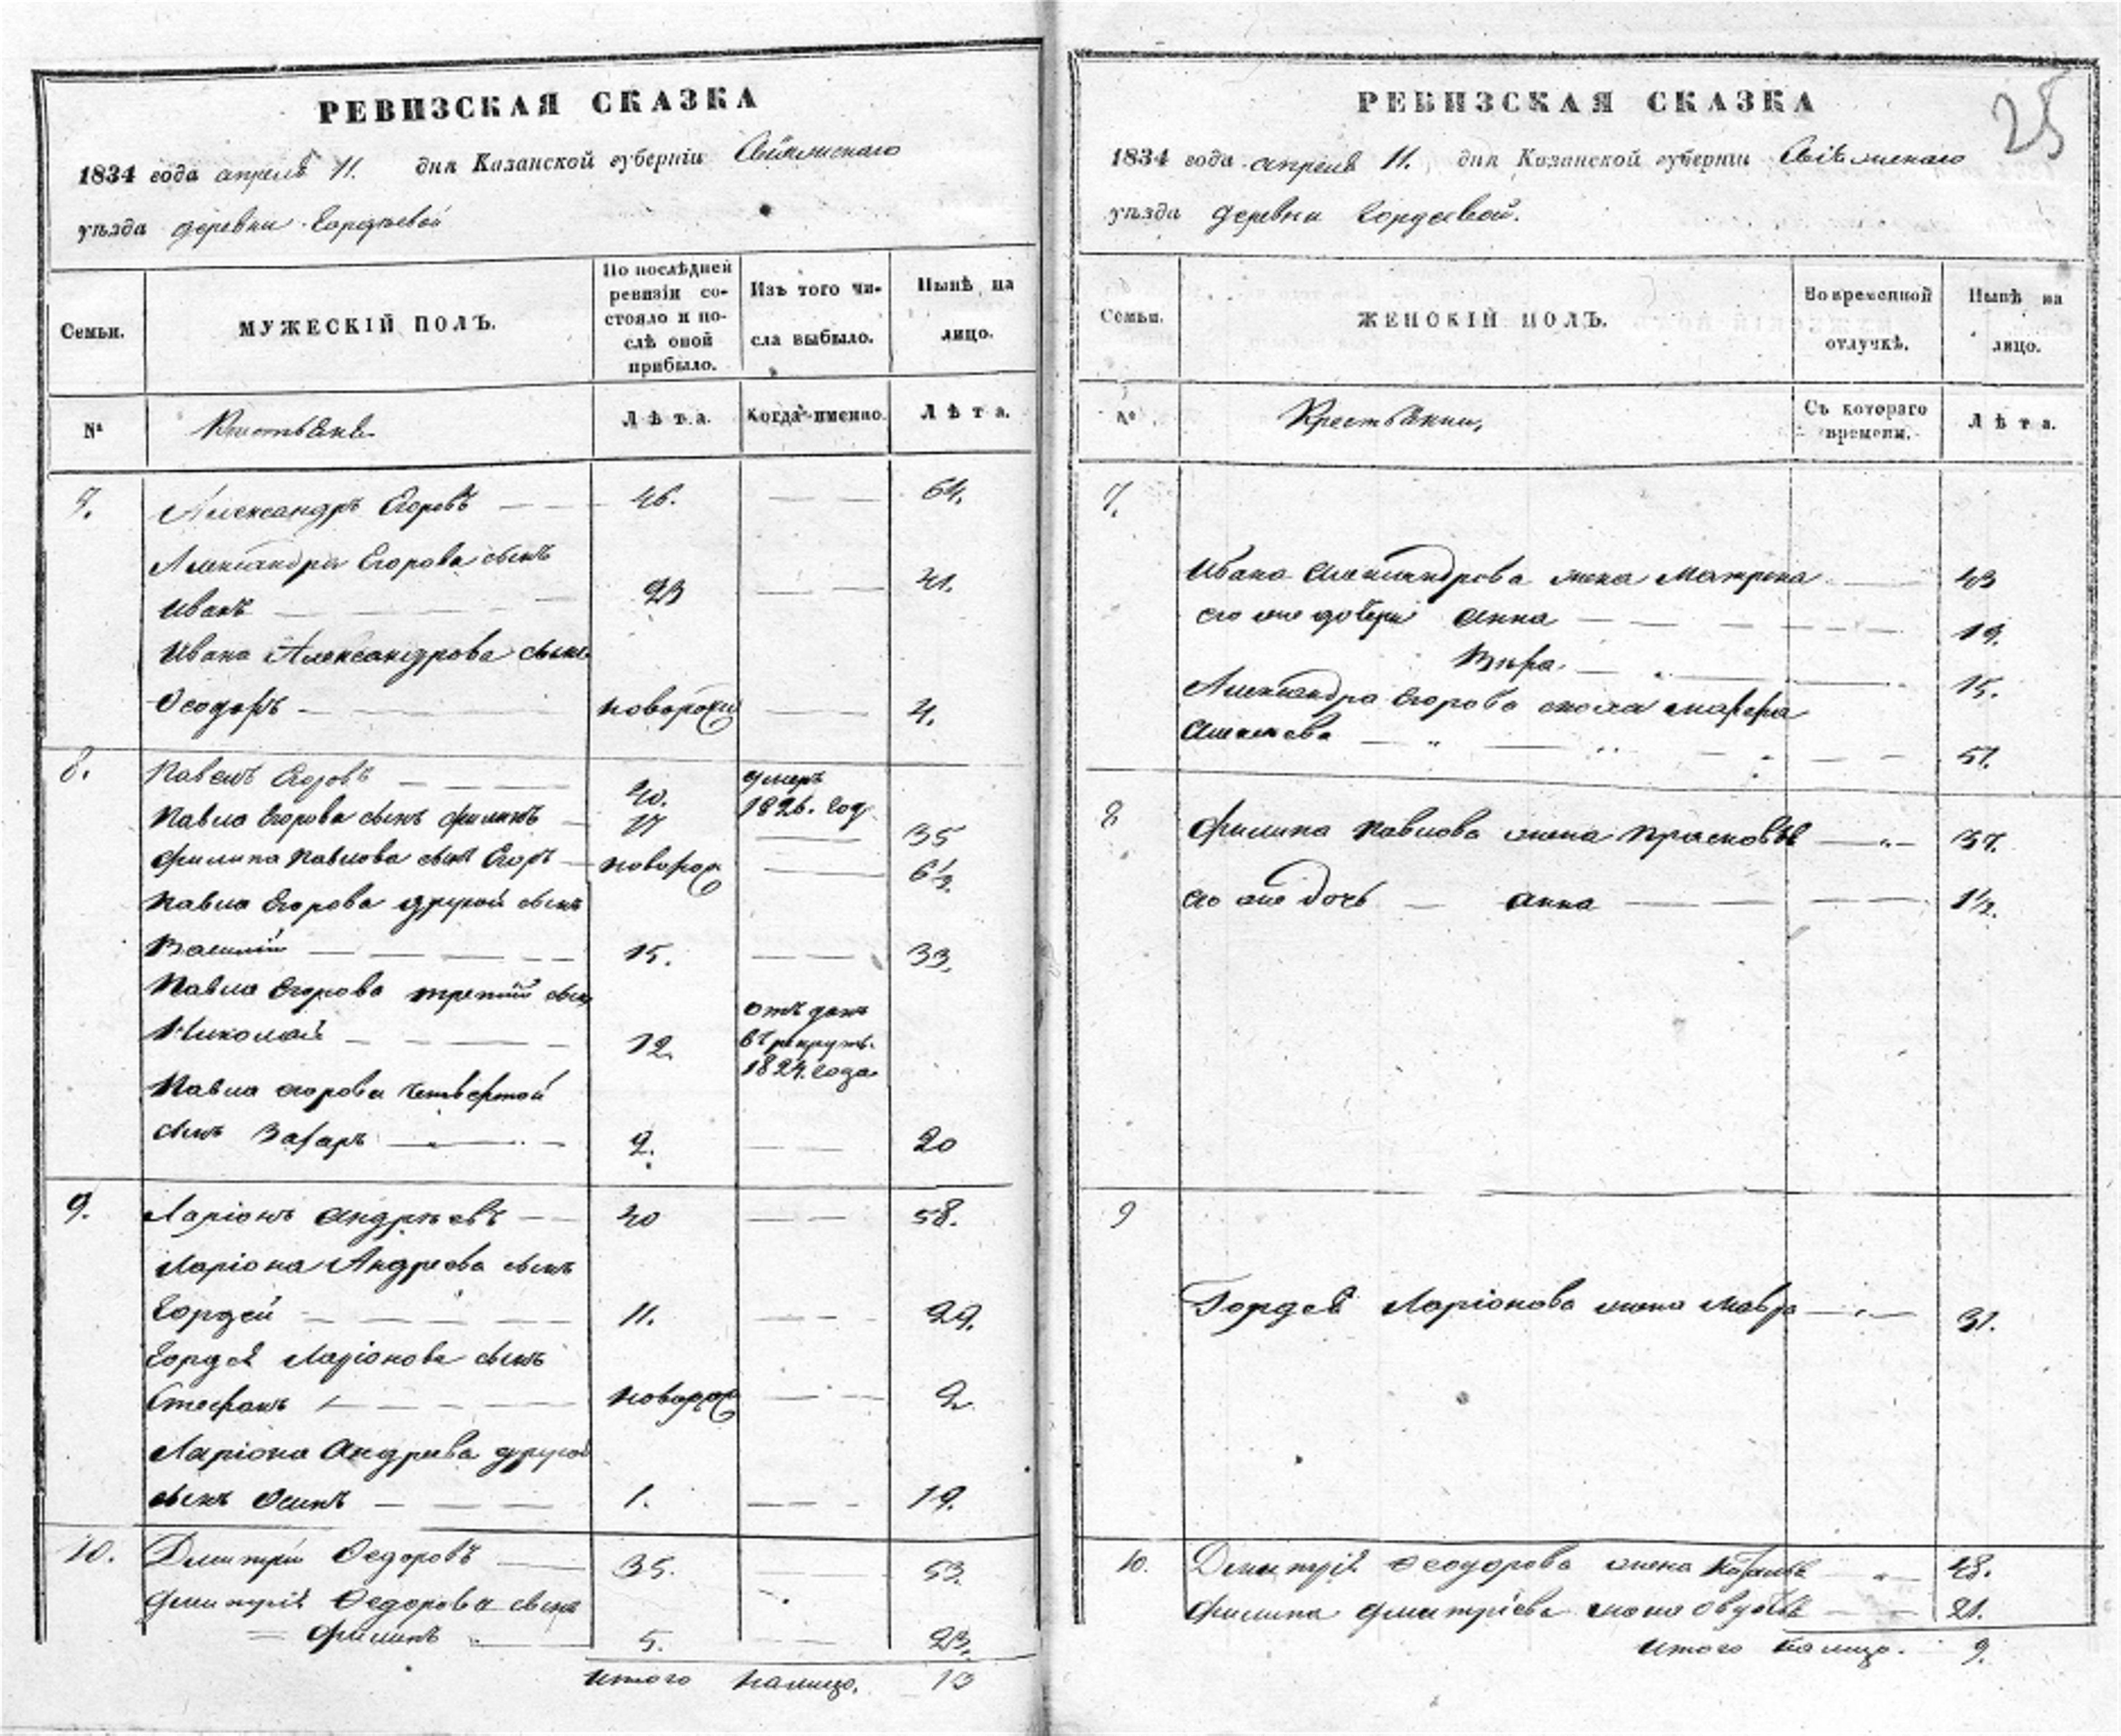 РЕВИЗСКАЯ СКАЗКА
1834 года апреля 11. дня Казанской губерніи Свіяжскаго
уѣзда деревни Гордѣевой
Семьи.
МУЖЕСКІЙ ПОЛЪ.
По послѣдней
ревизіи со-
стояло и по-
слѣ оной
прибыло.
Изъ того чи-
сла выбыло.
Нынѣ на
лицо.
№
Крестьяне
Лѣта.
Когда именно.
Лѣта.
7. Александръ Егоровъ 46. 64.
Александра Егорова сынъ
Иванъ 23 41.
Ивана Александрова сынъ
Ѳеодоръ новорож 4.
8. Павелъ Егоровъ 40. умеръ
1826. год
Павла Егорова сынъ Филипъ 17 35
Филипа Павлова сынъ Егоръ новорож 6½
Павла Егорова другой сынъ
Василій 15. 33.
Павла Егорова третій сынъ
Николай 12. отъ данъ
въ рекруты
1824. года
Павла Егорова четвертой
сынъ Захаръ 2. 20
9. Ларіонъ Андрѣевъ 40 58.
Ларіона Андреева сынъ
Гордей 11. 29.
Гордея Ларіонова сынъ
Стефанъ новорож 2
Ларіона Андреева другой
сынъ Осипъ 1. 19.
10. Дмитрій Ѳедоровъ 35. 53.
Дмитрія Ѳедорова сынъ
Филипъ 5. 23.
Итого налицо. 13
25
РЕВИЗСКАЯ СКАЗКА
1834 года апреля 11. дня Казанской губерніи Свіяжскаго
уѣзда деревни Гордеевой.
Семьи.
ЖЕНСКІЙ ПОЛЪ.
Во временной
отлучкѣ.
Нынѣ на
лицо.
№
Крестьянки,
Съ котораго
времени.
Лѣта.
7.
Ивана Александрова жена Матрена 43
его же дочери Анна 19.
Вѣра 15.
Александра Егорова жена Марфа
51.
8 Филипа Павлова жена Прасковья 37.
его же дочь Анна 1½.
9
Гордея Ларіонова жена Мавра 31.
10. Дмитрія Ѳеодорова жена 48.
Филипа Дмитріева жена Овдотья 21.
Итого налицо. 9.